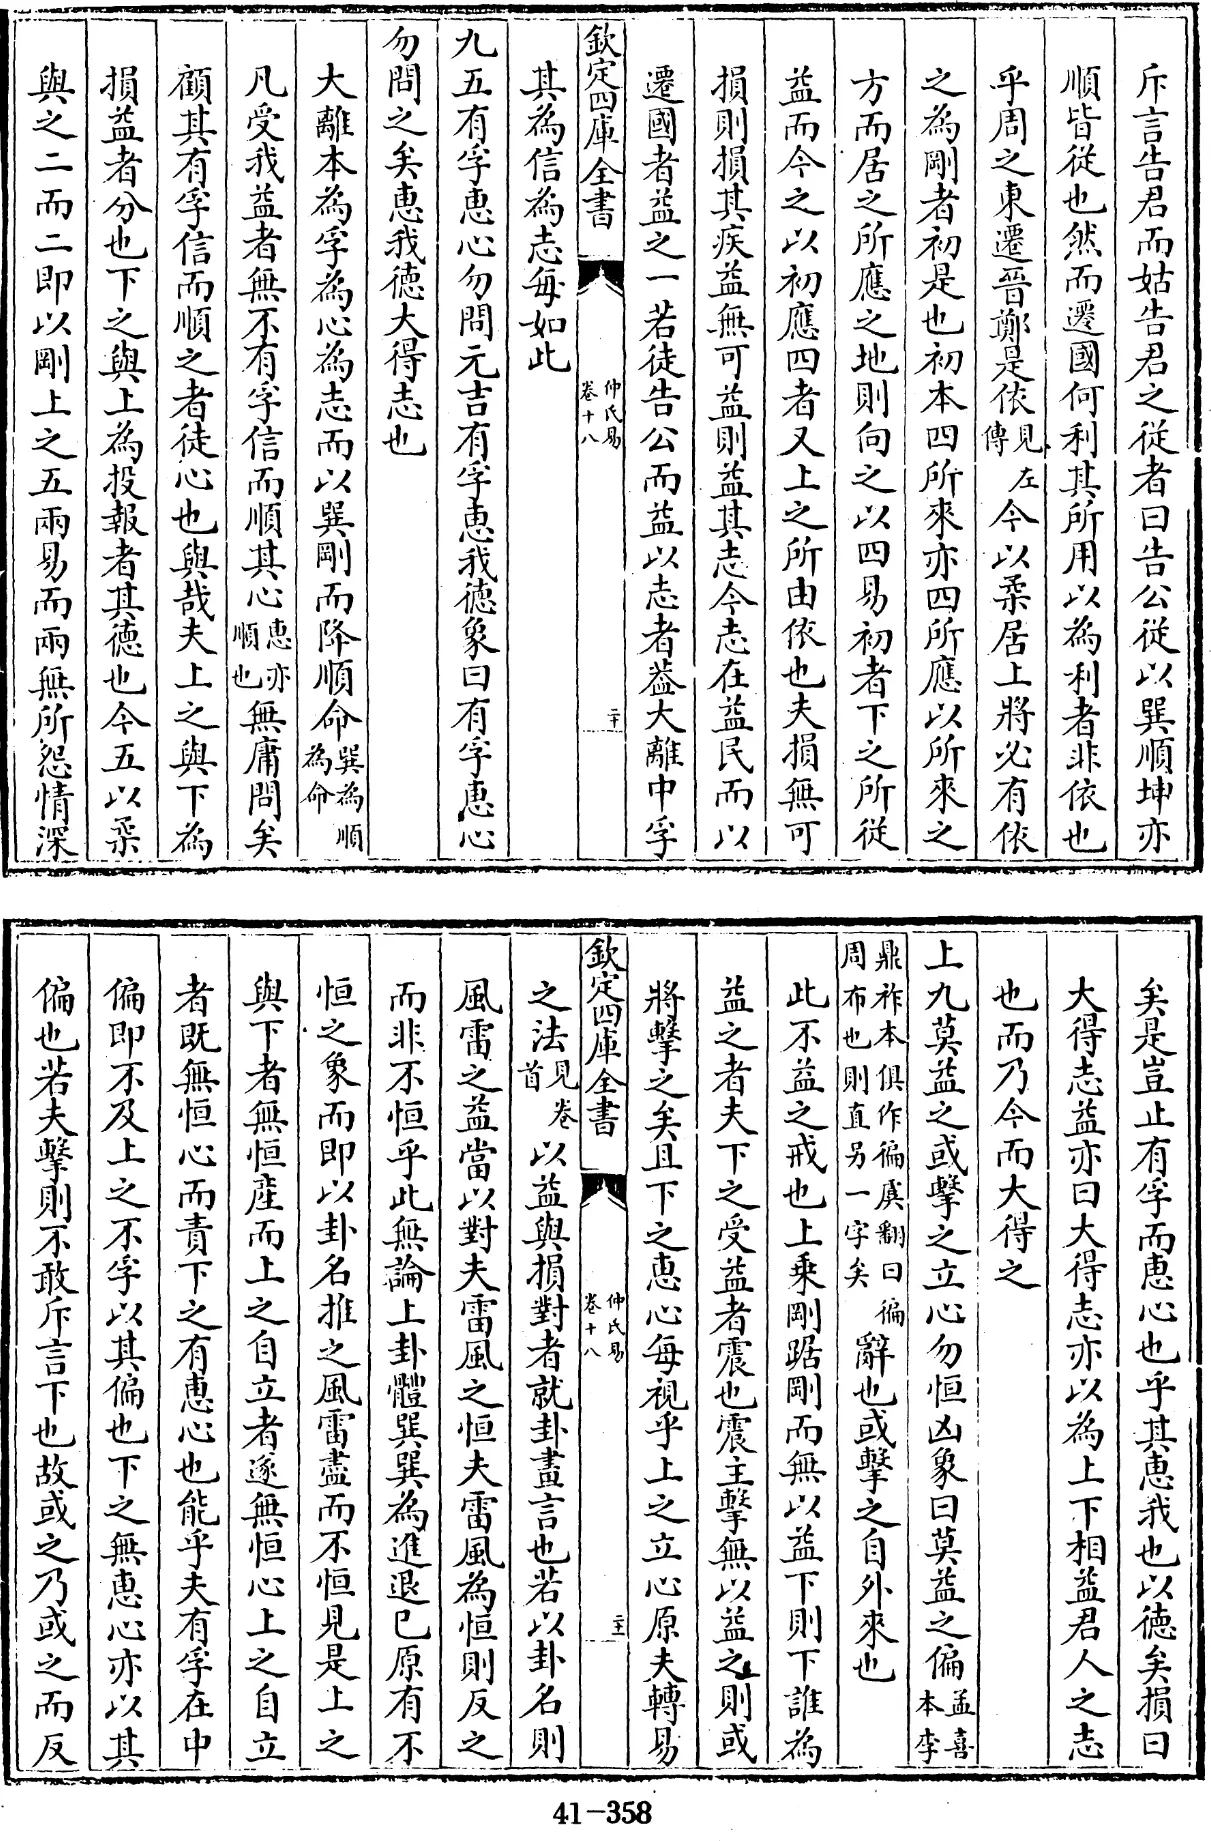 斥言告君而姑告君之從者曰告公從以巽順坤亦
順皆從也然而遷國何利其所用以為利者非依也
乎周之東遷晉鄭是依見左傳今以柔居上將必有依
之為剛者初是也初本四所來亦四所應以所來之
方而居之所應之地則向之以四易初者下之所從
益而今之以初應四者又上之所由依也夫損無可
損則損其疾益無可益則益其志今志在益民而以
遷國者益之一若徒告公而益以志者葢大離中孚
欽定四庫全書
仲氏易
卷十八
二十
其為信為志每如此
九五有孚惠心勿問元吉有孚惠我德象曰有孚惠心
勿問之矣惠我德大得志也
大離本為孚為心為志而以巽剛而降順命巽為順為命
凡受我益者無不有孚信而順其心惠亦順也無庸問矣
顧其有孚信而順之者徒心也與哉夫上之與下為
損益者分也下之與上為投報者其德也今五以柔
與之二而二即以剛上之五兩易而兩無所怨情深
矣是豈止有孚而惠心也乎其惠我也以德矣損曰
大得志益亦曰大得志亦以為上下相益君人之志
也而乃今而大得之
上九莫益之或擊之立心勿恒凶象曰莫益之偏孟喜本李
鼎祚本俱作徧虞翻曰徧周布也則直另一字矣辭也或擊之自外來也
此不益之戒也上乘剛踞剛而無以益下則下誰為
益之者夫下之受益者震也震主擊無以益之則或
將擊之矣且下之惠心每視乎上之立心原夫轉易
欽定四庫全書
仲氏易
卷十八
二十一
之法見卷首以益與損對者就卦畫言也若以卦名則
風雷之益當以對夫雷風之恒夫雷風為恒則反之
而非不恒乎此無論上卦體巽巽為進退已原有不
恒之象而即以卦名推之風雷盡而不恒見是上之
與下者無恒產而上之自立者遂無恒心上之自立
者既無恒心而責下之有惠心也能乎夫有孚在中
偏即不及上之不孚以其偏也下之無惠心亦以其
偏也若夫擊則不敢斥言下也故或之乃或之而反
41-358